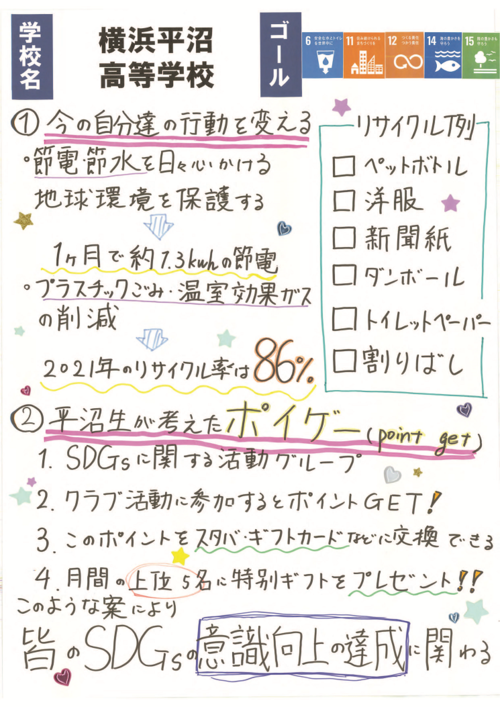 学校名
横浜平沼
高等学校
ゴール
6
11
12
14
15
① 今の自分達の行動を変える
・節電・節水を日々心がける
地球環境を保護する
1ヶ月で約1.3kwhの節電
・プラスチックごみ・温室効果ガス
の削減
2021年のリサイクル率は86%
リサイクル例
□ ペットボトル
□ 洋服
□ 新聞紙
□ ダンボール
□ トイレットペーパー
□ 割りばし
② 平沼生が考えたポイゲー(point get)
1. SDGsに関する活動グループ
2. クラブ活動に参加するとポイントGET!
3. このポイントをスタバ・ギフトカードなどに交換できる
4. 月間の上位5名に特別ギフトをプレゼント!!
このような案により
皆のSDGsの意識向上の達成に関わる